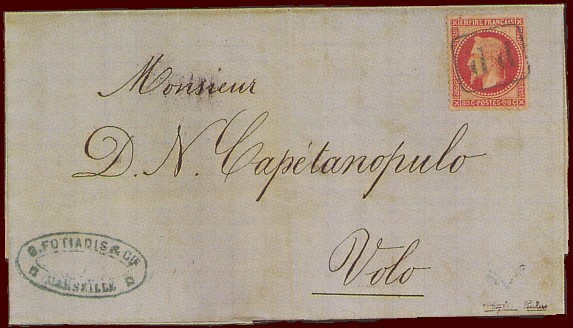 EMPIRE FRANÇAIS
80 C POSTES 80 C
Monsieur
D. N. Capétanopulo
Volo
G. FOTIADIS & CIE
MARSEILLE